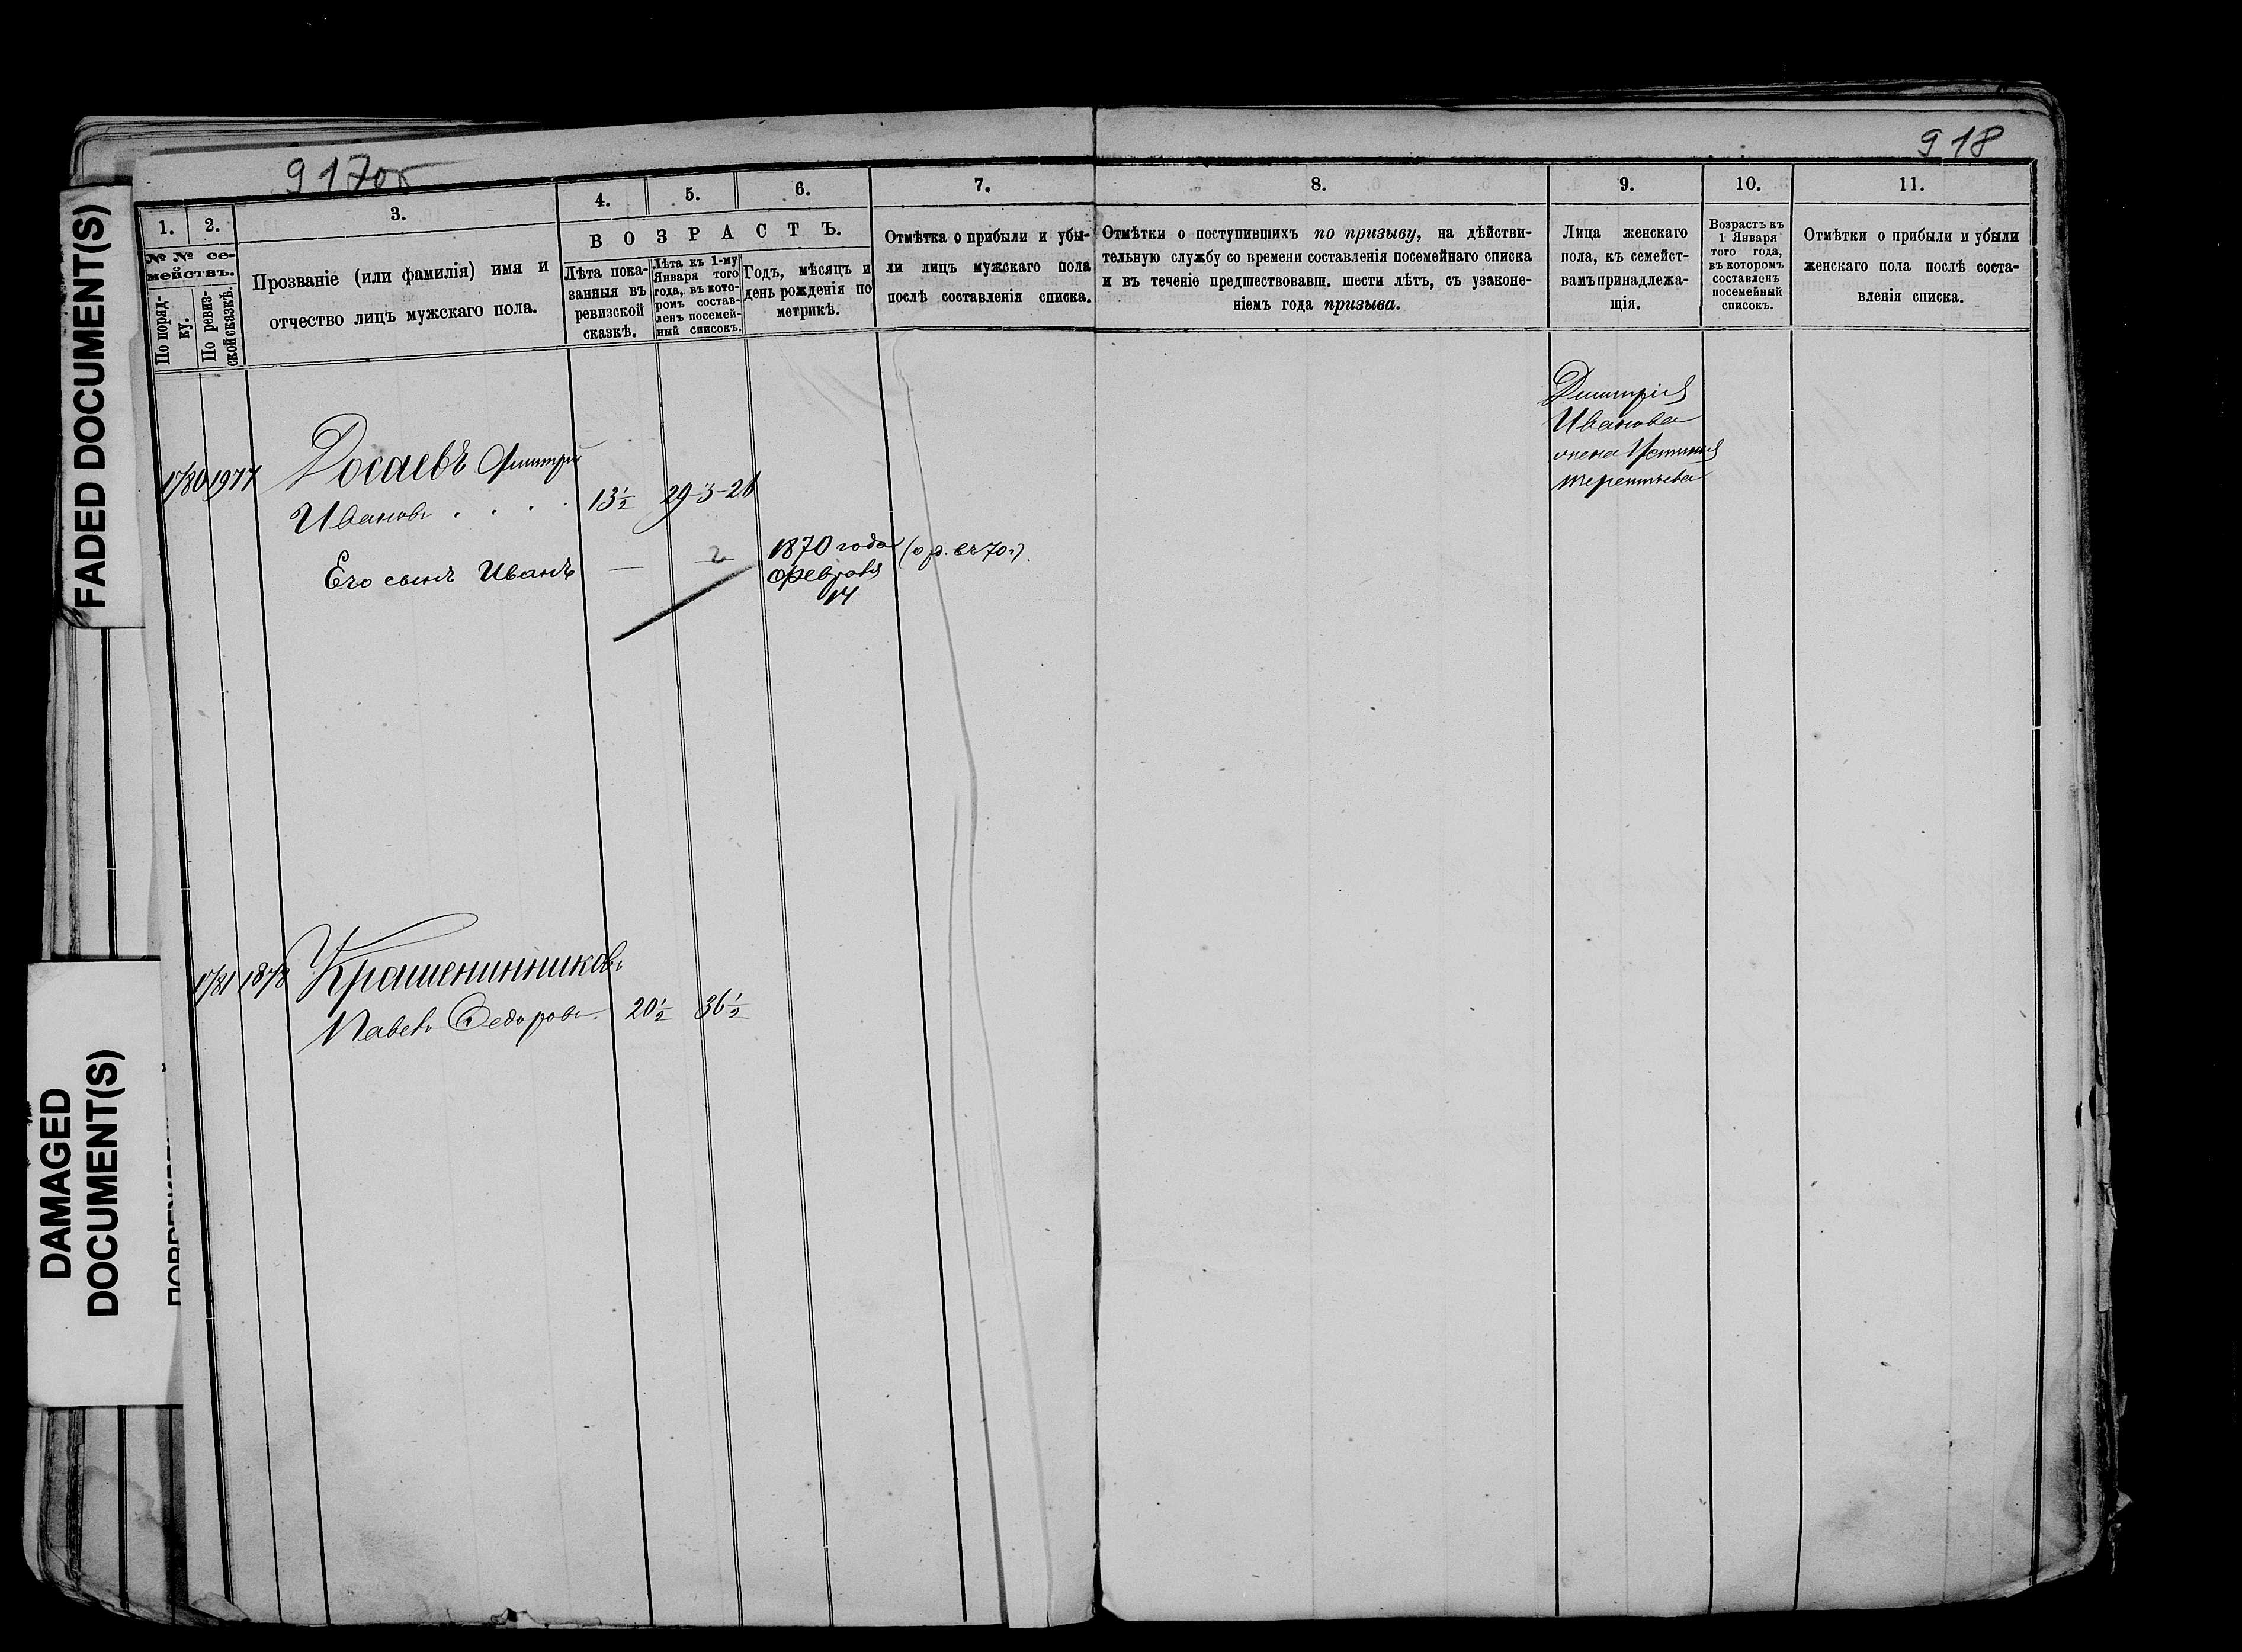 917об
918
FADED DOCUMENT(S)
DAMAGED
DOCUMENT(S)
1.
2.
3.
4.
5.
6.
7.
8.
9.
10.
11.
№ № се-
мействъ.
По поряд-
ку.
По ревиз-
ской сказкѣ.
Прозваніе (или фамилія) имя и
отчество лицъ мужскаго пола.
ВОЗРАСТЪ.
Лѣта пока-
занныя въ
ревизской
сказкѣ.
Лѣта къ 1-му
Января того
года, въ кото-
ромъ состав-
ленъ посемей-
ный списокъ.
Годъ, мѣсяцъ и
день рожденія по
метрикѣ.
Отмѣтка о прибыли и убы-
ли лицъ мужскаго пола
послѣ составленія списка.
Отмѣтки о поступившихъ по призыву, на дѣйстви-
тельную службу со времени составленія посемейнаго списка
и въ теченіе предшествовавш. шести лѣтъ, съ узаконе-
ніемъ года призыва.
Лица женскаго
пола, къ семейст-
вамъ принадлежа-
щія.
Возрастъ къ
1 Января
того года,
въ которомъ
составленъ
посемейный
списокъ.
Отмѣтки о прибыли и убыли
женскаго пола послѣ соста-
вленія списка.
1780 1977 Досаевъ Дмитрій
Ивановъ . . . . 13½ 29-3-21
Его сынъ Иванъ — 2 1870 года (о р. въ 70 г).
февраля
14
Димитрія
Иванова
жена Устинія
Терентьева
1781 1878 Крашенинниковъ
Павелъ Федоровъ 20½ 36½